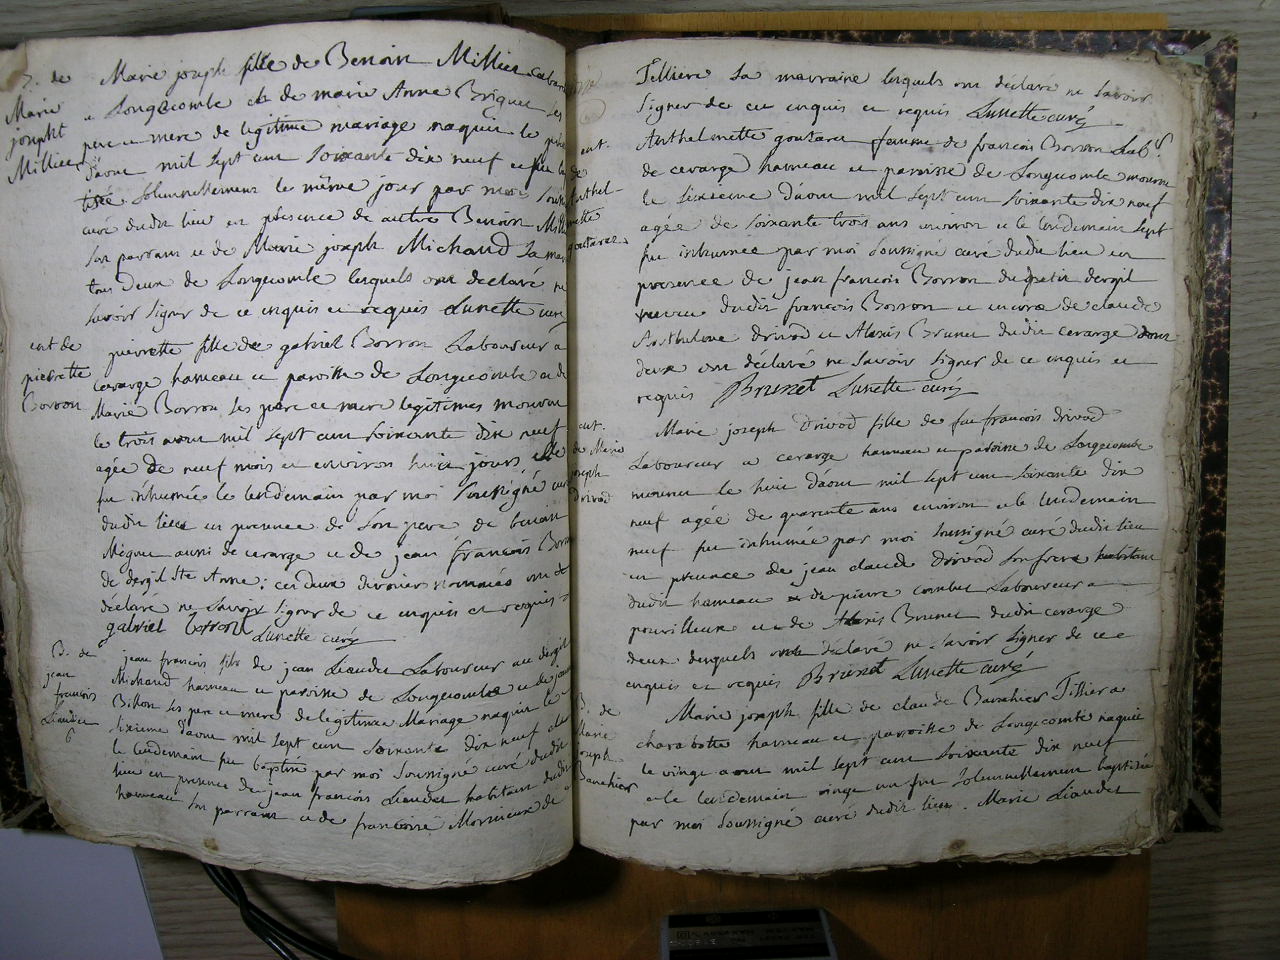 B. de
Marie
joseph
Millier
Marie joseph fille de Benoit Millier
a Longecombe et de marie Anne Briquet ses
pere et mere de legitime mariage naquit le
d'aout mil sept cent soixante dix neuf et fut
tisée solemnellement le même jour par moi
curé dudit lieu en présence de autre Benoit
son parrain et de Marie joseph Michaud sa
tous deux de Longecombe lesquels ont declaré ne
savoir signer de ce enquis et requis Lunette curé
ent de
pierrette
Borron
pierrette fille de gabriel Borron Laboureur a
cerarge hameau et paroisse de Longecombe et de
Marie Borron ses pere et mere legitimes mourut
le trois aout mil sept cent soixante dix neuf
agée de neuf mois et environ huit jours elle
fut inhumée le lendemain par moi soussigné curé
dudit lieu en presence de son pere de benoit
aussi de cerarge et de jean françois Borron
de dergil Ste Anne: ces deux derniers nommés ont
déclaré ne savoir signer de ce enquis et requis
gabriel borron Lunette curé
B. de
jean
françois
Liaudet
jean françois fils de jean Liaudet Laboureur au dergit
Michaud hameau et paroisse de Longecombe et de
Billon ses pere et mere de legitime Mariage naquit le
sixieme d'aout mil sept cent soixante dix neuf et
le lendemain fut baptisé par moi soussigné curé dudit
lieu en presence de jean françois Liaudet habitant dudit
hameau son parrain et de françoise Mornieux de
Tellière sa marraine lesquels ont déclaré ne savoir
signer de ce enquis et requis Lunette curé
ent.
de
Anthel-
mette
goutaret
Anthelmette goutaret femme de francois Borron Lab.r
de cerarge hameau et paroisse de Longecombe mourut
le sixieme d'aout mil sept cent soixante dix neuf
agée de soixante trois ans environ et le lendemain sept
fut inhumée par moi soussigné curé dudit lieu en
presence de jean francois Borron du petit dergil
neveu dudit françois Borron et encore de claude
Anthelme drivod et Alexis Brunet dudit cerarge
deux ont déclaré ne savoir signer de ce enquis et
requis Brunet Lunette curé
ent.
de Marie
joseph
Drivod
Marie joseph Drivod fille de feu francois drivod
Laboureur a cerarge hameau et paroisse de Longecombe
mourut le huit d'aout mil sept cent soixante dix
neuf agée de quarante ans environ et le lendemain
neuf fut inhumée par moi soussigné curé dudit lieu
en presence de jean claude drivod son frere habitant
dudit hameau et de pierre combet Laboureur a
pourilleux et de Alexis Brunet dudit cerarge
deux desquels ont déclaré ne savoir signer de ce
enquis et requis Brunet Lunette curé
B. de
Marie
joseph
Barrhier
Marie joseph fille de claude Barrhier Tissier a
charabotte hameau et paroisse de Longecombe naquit
le vingt aout mil sept cent soixante dix neuf
et le lendemain vingt un fut solemnellement baptisée
par moi soussigné curé dudit lieu. Marie Liaudet